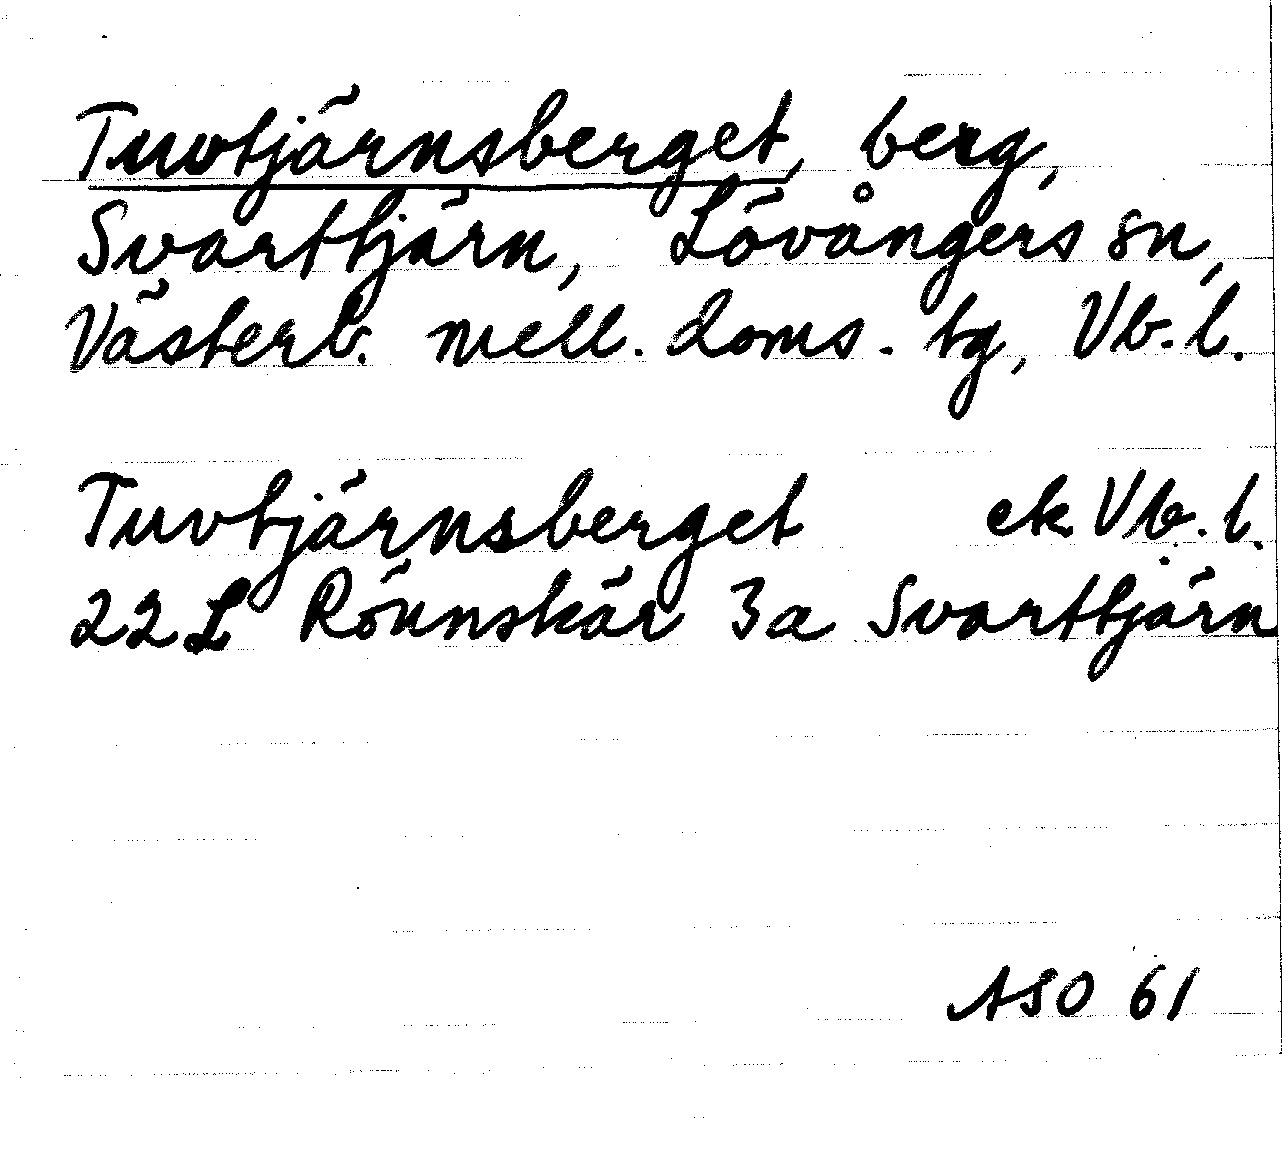 Tuvtjärnsberget, berg,
Svarttjärn, Lövångers sn,
Västerb. mell. doms. tg, Vb. l.
Tuvtjärnsberget ek Vb. l.
22 L Rönnskär 3a Svarttjärn
ASO 61